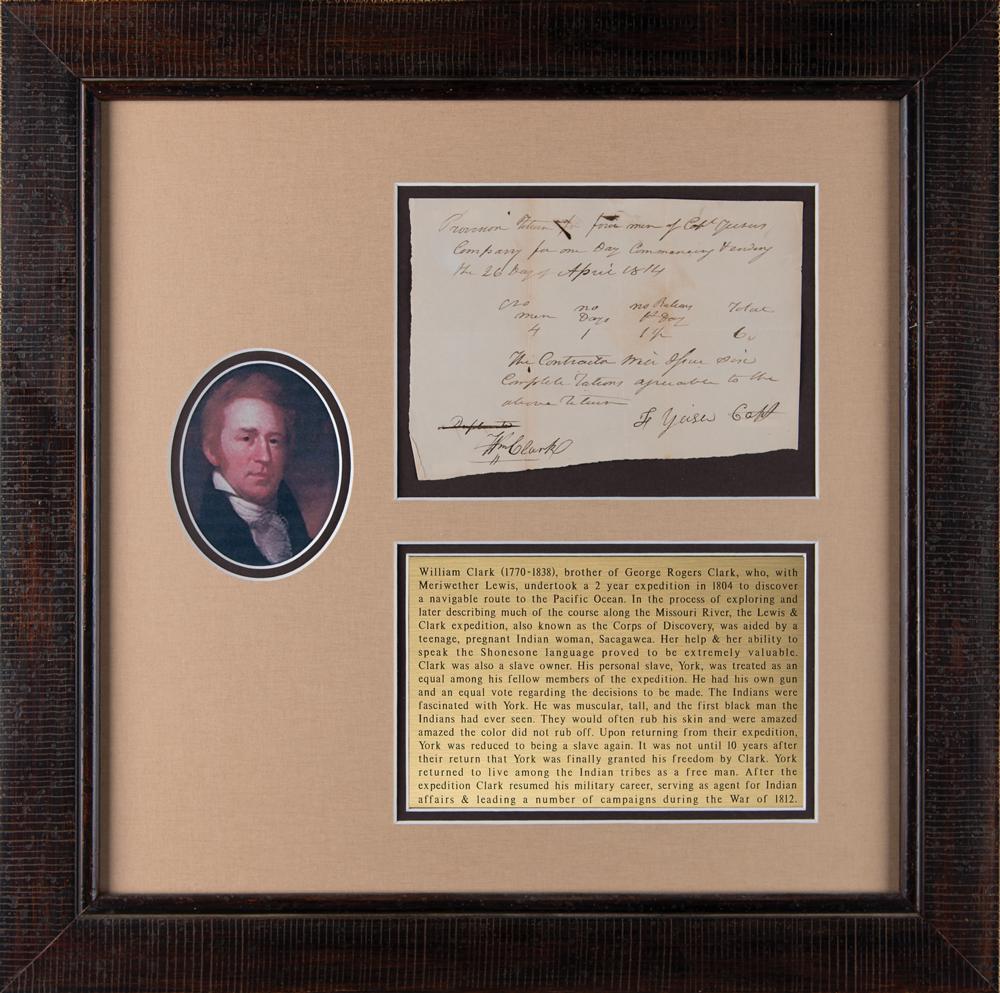 Provision Return for four men of Capt Yeisers
Company for one Day Commencing & ending
the 26 Day of April 1814
No men no Days no Rations pr Day Total
4 1 1½ 6
The Contractor Will Issue Six
Complete rations agreeable to the
above Return
F Yeiser Capt
Wm Clark
William Clark (1770-1838), brother of George Rogers Clark, who, with
Meriwether Lewis, undertook a 2 year expedition in 1804 to discover
a navigable route to the Pacific Ocean. In the process of exploring and
later describing much of the course along the Missouri River, the Lewis &
Clark expedition, also known as the Corps of Discovery, was aided by a
teenage, pregnant Indian woman, Sacagawea. Her help & her ability to
speak the Shonesone language proved to be extremely valuable.
Clark was also a slave owner. His personal slave, York, was treated as an
equal among his fellow members of the expedition. He had his own gun
and an equal vote regarding the decisions to be made. The Indians were
fascinated with York. He was muscular, tall, and the first black man the
Indians had ever seen. They would often rub his skin and were amazed
amazed the color did not rub off. Upon returning from their expedition,
York was reduced to being a slave again. It was not until 10 years after
their return that York was finally granted his freedom by Clark. York
returned to live among the Indian tribes as a free man. After the
expedition Clark resumed his military career, serving as agent for Indian
affairs & leading a number of campaigns during the War of 1812.